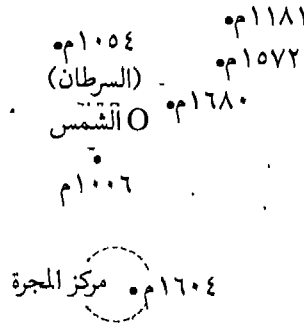 ١١٨١م
١٠٥٤م
١٥٧٢م
(السرطان)
١٦٨٠م
الشمس
١٠٠٦م
١٦٠٤م
مركز المجرة